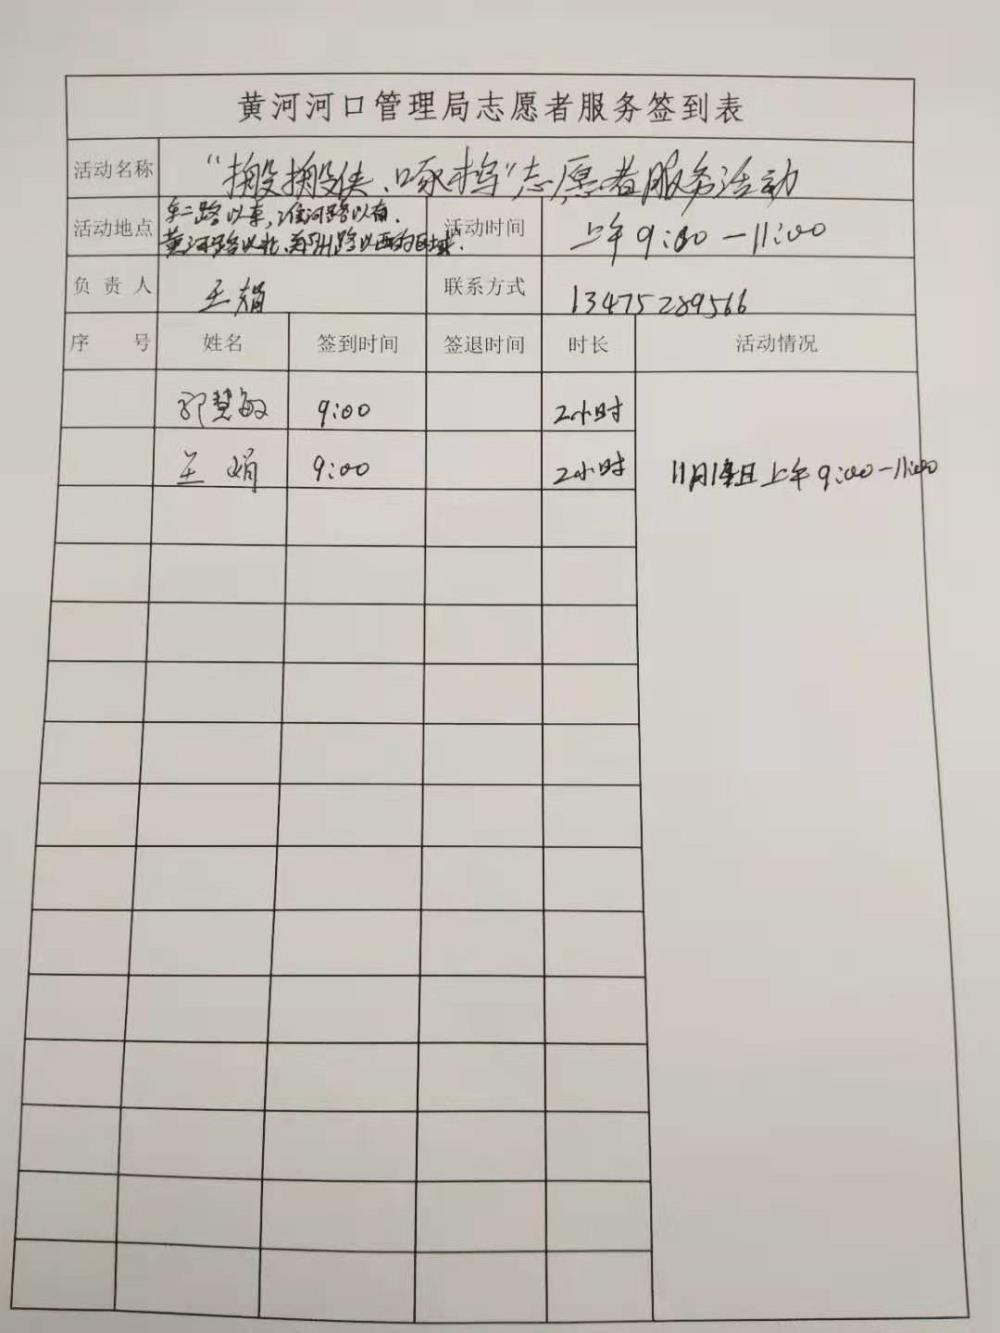 黄河河口管理局志愿者服务签到表
活动名称 “搬搬侠、啄木鸟”志愿者服务活动
活动地点 东二路以东，淮河路以南，
黄河路以北，郑州路以西的区域。 活动时间 上午9:00-11:00
负责人 王娟 联系方式 13475289566
序号 姓名 签到时间 签退时间 时长 活动情况
郭慧敏 9:00 2小时
王娟 9:00 2小时 11月 日上午9:00-11:00